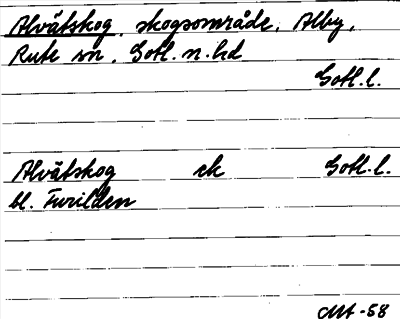 Alvätskog, skogsområde, Alby,
Rute sn, Gotl. n. hd
Gotl. l.
Alvätskog ek Gotl. l.
bl. Furilden
-58